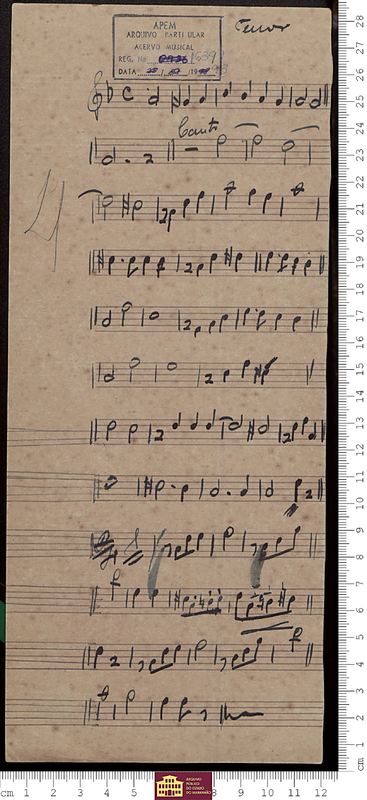 Tenor
APEM
ARQUIVO PARTICULAR
ACERVO MUSICAL
REG. Nº
DATA
Canto
28
27
26
25
24
23
22
21
20
19
18
17
16
15
14
13
12
11
10
9
8
7
6
5
4
3
2
1
cm
cm 1 2 3 4 5 8 9 10 11 12
ARQUIVO
PÚBLICO
DO ESTADO
DO MARANHÃO